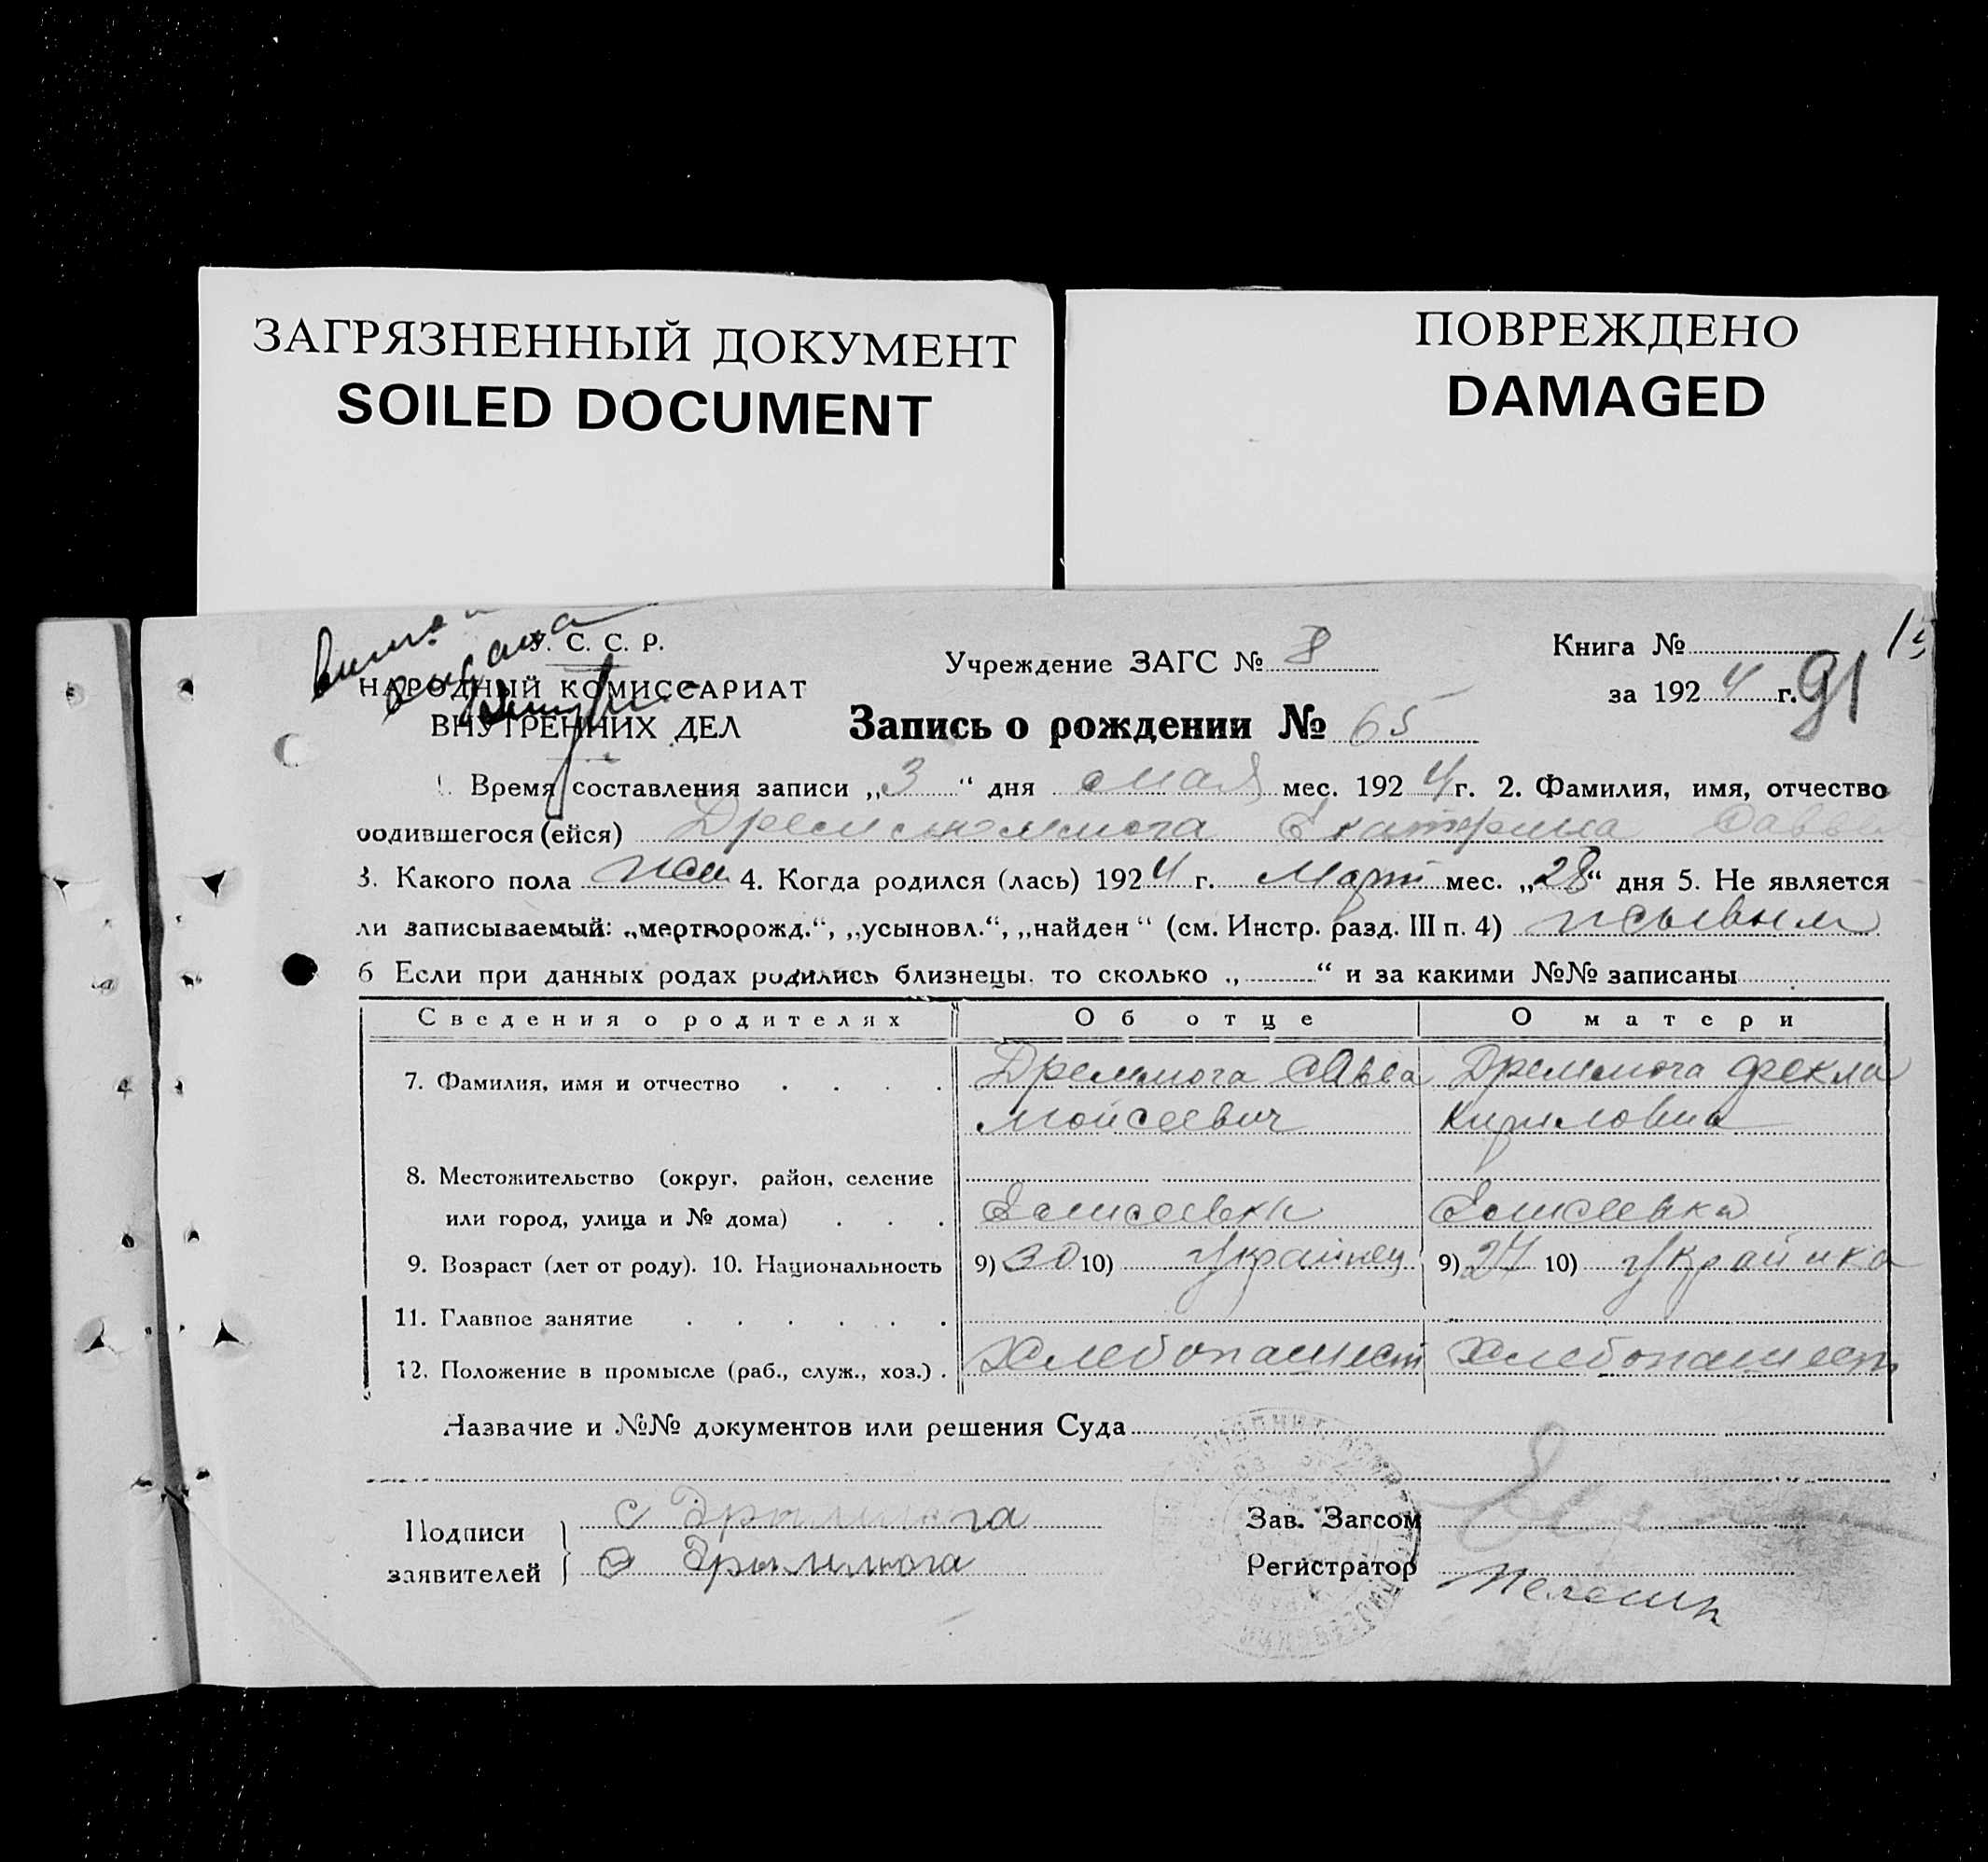 ЗАГРЯЗНЕННЫЙ ДОКУМЕНТ
SOILED DOCUMENT
ПОВРЕЖДЕНО
DAMAGED
У. С. С. Р.
НАРОДНЫЙ КОМИССАРИАТ
ВНУТРЕННИХ ДЕЛ
Учреждение ЗАГС № 8
Книга №
за 1924 г. 91
Запись о рождении № 65
1. Время составления записи „3“ дня мая мес. 1924 г. 2. Фамилия, имя, отчество
родившегося (ейся) Екатерина
3. Какого пола жен 4. Когда родился (лась) 1924 г. Март мес. „28“ дня 5. Не является
ли записываемый: „мертворожд.“, „усыновл.“, „найден“ (см. Инстр. разд. III п. 4)
6 Если при данных родах родились близнецы, то сколько „ “ и за какими №№ записаны
Сведения о родителях Об отце О матери
7. Фамилия, имя и отчество Дремлюга Савва Дремлюга Фекла
Мойсеевич Кириловна
8. Местожительство (округ, район, селение
или город, улица и № дома) Елисеевка Елисеевка
9. Возраст (лет от роду). 10. Национальность 9) 30 10) Украинец 9) 27 10) Украинка
11. Главное занятие
12. Положение в промысле (раб., служ., хоз.) Хлебопашест Хлебопашест
Название и №№ документов или решения Суда
Подписи
заявителей
С Дрымлюга
Дрымлюга
Зав. Загсом
Регистратор